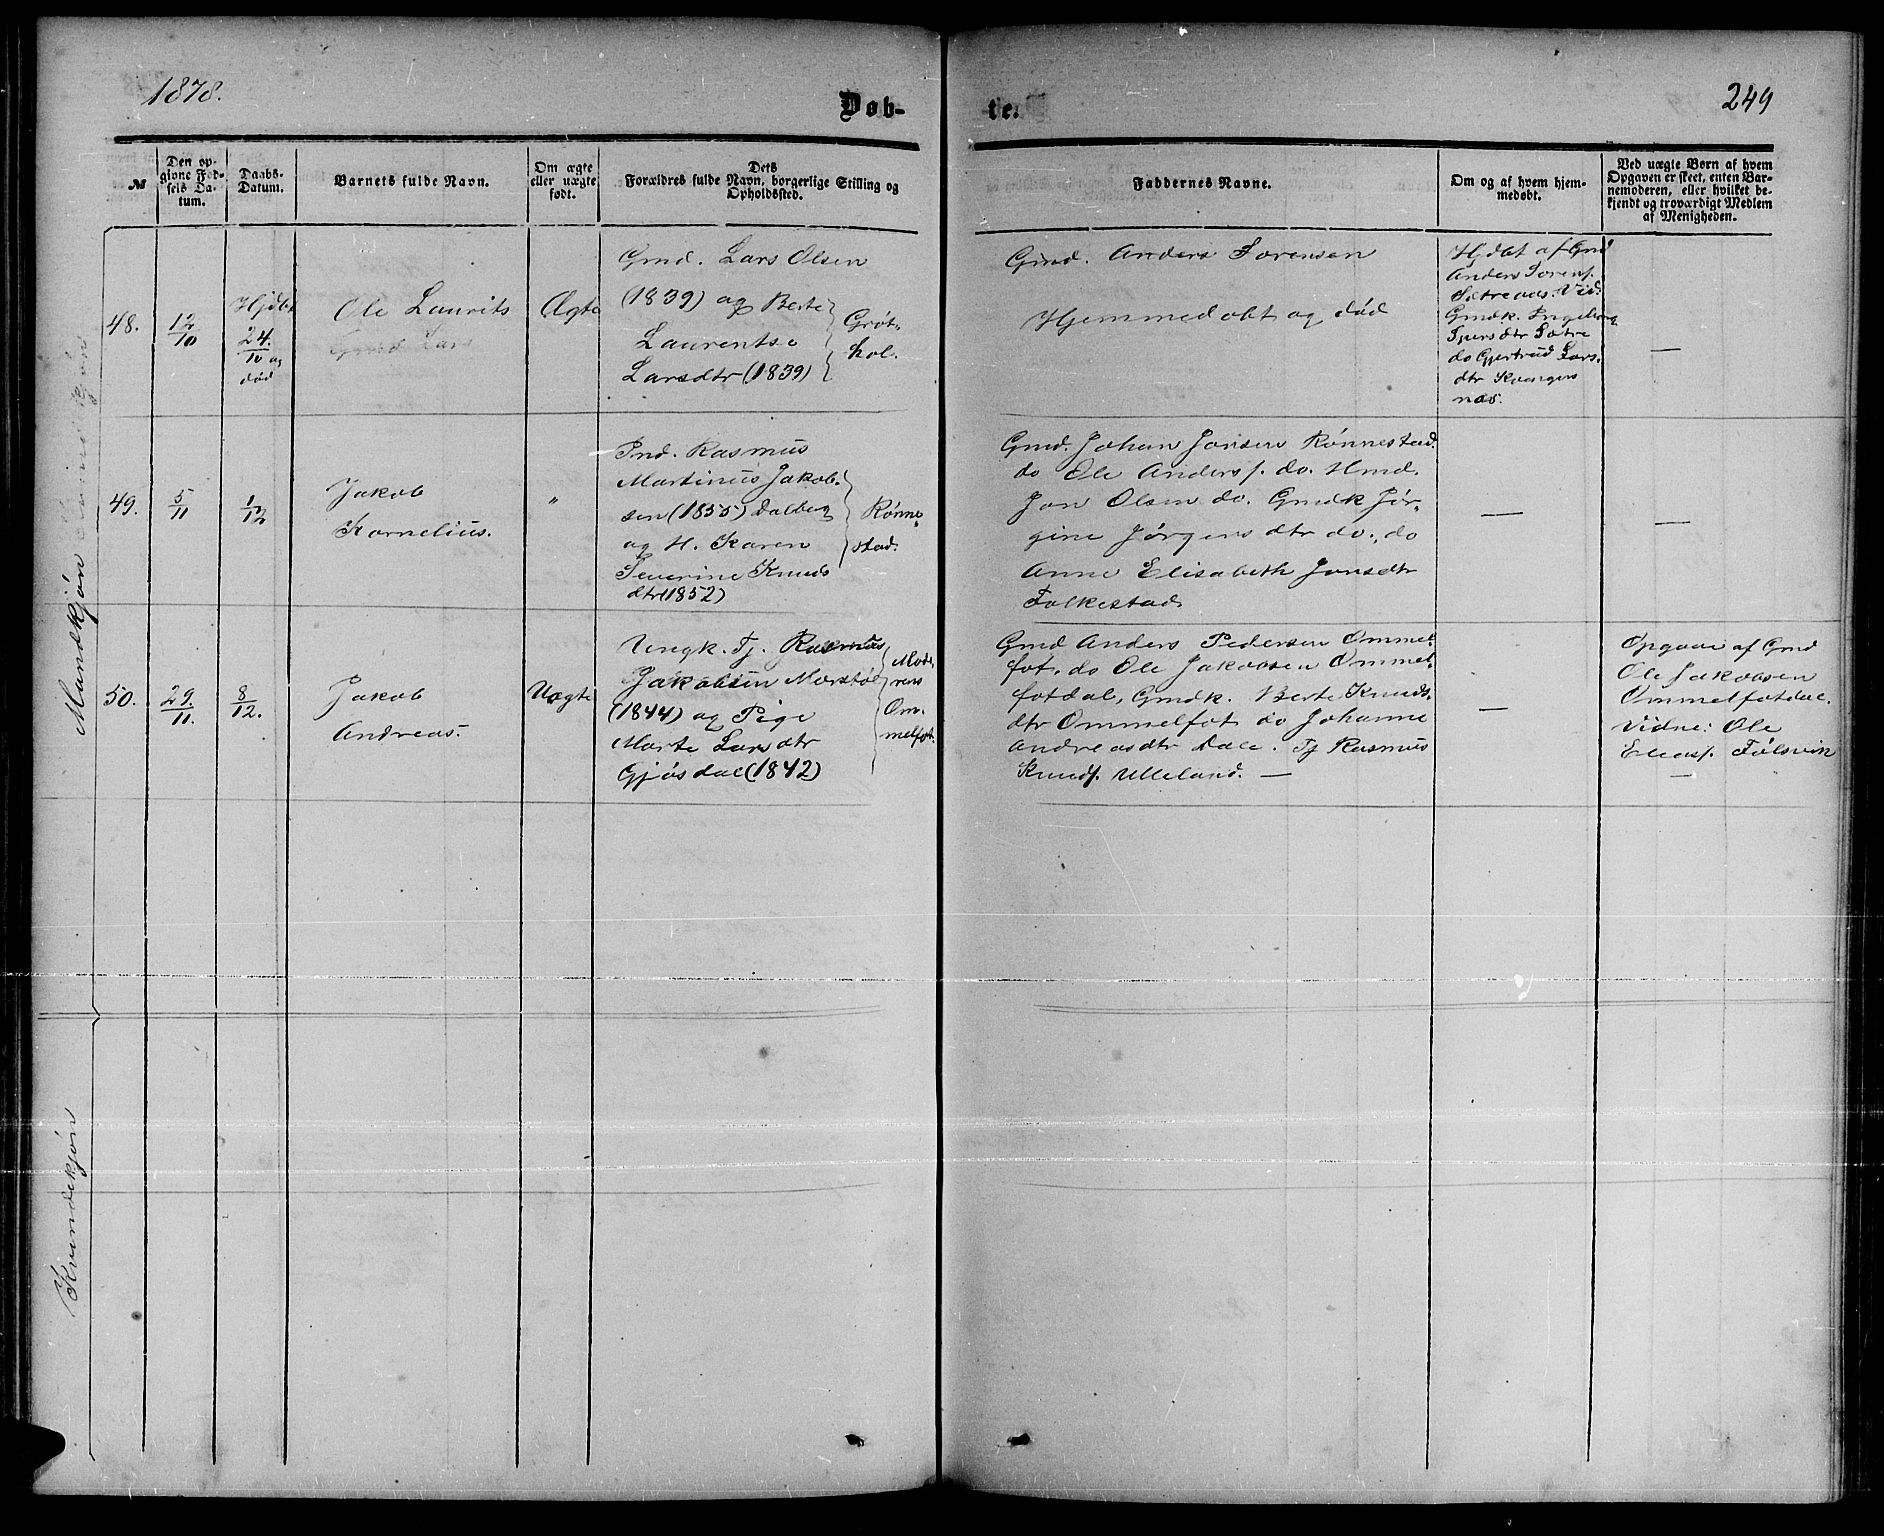 1878.
Døb-
te.
249
№
Den op-
givne Fød-
sels Da-
tum.
Daabs-
Datum.
Barnets fulde Navn.
Om ægte
eller uægte
født.
Dets
Forældres fulde Navn, borgerlige Stilling og
Opholdssted.
Faddernes Navne.
Om og af hvem hjem-
medøbt.
Ved uægte Børn af hvem
Opgaven er skeet, enten Bar-
nemoderen, eller hvilket be-
kjendt og troværdigt Medlem
af Menigheden.
Mandkjøn
48.
12/10
Hjdbt
24.
10 og
død
Ole Laurits
Ægte
Gmd. Lars Olsen
(1839) og Berte
Laurentse
Larsdtr (1839)
Grøt-
hol.
Gmd. Anders Sorensen
Hjemmedøbt og død
Hjdbt af Gmd
Anders Sorens.
Sætrenes. Vid:
Gmdk. Ingeborg
Iversdtr Sætre
do Gjertrud Lars-
dtr Kvangers
næs.
—
49.
5/11
1/12
Jakob
Kornelius.
"
Ind. Rasmus
Martinus Jakob-
sen (1855) Dalberg
og H. Karen
Severine Knuds
dtr (1852)
Rønne-
stad.
Gmd. Johan Jonsen Rønnestad.
do Ole Anders. do. Hmd.
Jon Olsen do. Gmdk Jør-
gine Jørgensdtr do., do
Anne Elisabeth Jonsdtr
Folkestad.
—
—
50.
29/11.
8/12.
Jakob
Andreas.
Uægte
Ungk. Tj. Rasmus
Jakobsen Morstøl
(1844) og Pige
Marte Larsdtr
Gjøsdal (1842)
Mode-
rens
Om-
melfot.
Gmd Anders Pedersen Ommel-
fot, do Ole Jakobsen Ommel-
fotdal, Gmdk. Berte Knuds-
dtr Ommelfot do Johanne
Andreasdtr Dale. Tj Rasmus
Knuds. Ulleland. —
—
Opgave af Gmd
Ole Jakobsen
Ommelfotdal.
Vidne: Ole
Elias. Følsvik
—
Kvindekjøn